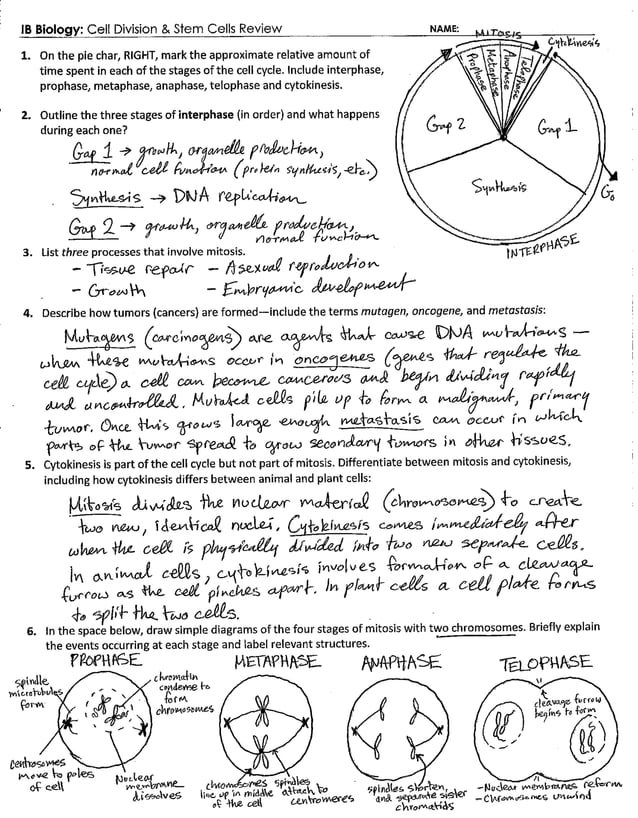 IB Biology: Cell Division & Stem Cells Review
NAME:
1. On the pie char, RIGHT, mark the approximate relative amount of
time spent in each of the stages of the cell cycle. Include interphase,
prophase, metaphase, anaphase, telophase and cytokinesis.
MITOSIS
Cytokinesis
Prophase
Metaphase
Anaphase
Telophase
Gap 2
Gap 1
Synthesis
G0
INTERPHASE
2. Outline the three stages of interphase (in order) and what happens
during each one?
Gap 1 → growth, organelle production,
normal cell function (protein synthesis, etc.)
Synthesis → DNA replication
Gap 2 → growth, organelle production,
normal function
3. List three processes that involve mitosis.
- Tissue repair - Asexual reproduction
- Growth - Embryonic development
4. Describe how tumors (cancers) are formed—include the terms mutagen, oncogene, and metastasis:
Mutagens (carcinogens) are agents that cause DNA mutations —
when these mutations occur in oncogenes (genes that regulate the
cell cycle) a cell can become cancerous and begin dividing rapidly
and uncontrolled. Mutated cells pile up to form a malignant, primary
tumor. Once this grows large enough metastasis can occur in which
parts of the tumor spread to grow secondary tumors in other tissues.
5. Cytokinesis is part of the cell cycle but not part of mitosis. Differentiate between mitosis and cytokinesis,
including how cytokinesis differs between animal and plant cells:
Mitosis divides the nuclear material (chromosomes) to create
two new, identical nuclei. Cytokinesis comes immediately after
when the cell is physically divided into two new separate cells.
In animal cells, cytokinesis involves formation of a cleavage
furrow as the cell pinches apart. In plant cells a cell plate forms
to split the two cells.
6. In the space below, draw simple diagrams of the four stages of mitosis with two chromosomes. Briefly explain
the events occurring at each stage and label relevant structures.
PROPHASE
spindle
microtubules
form
chromatin
condense to
form
chromosomes
centrosomes
move to poles
of cell
Nuclear
membrane
dissolves
METAPHASE
chromosomes
line up in middle
of the cell
spindles
attach to
centromeres
ANAPHASE
spindles shorten,
and separate sister
chromatids
TELOPHASE
cleavage furrow
begins to form
- Nuclear membranes reform
- Chromosomes unwind